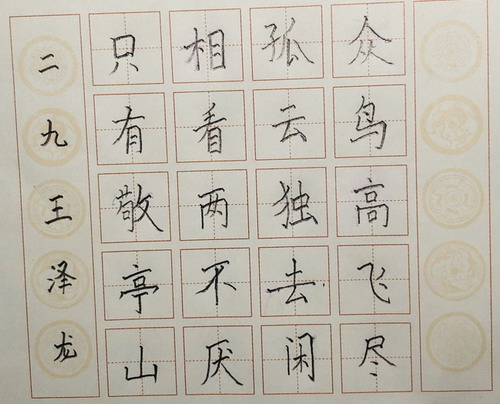 众鸟高飞尽
孤云独去闲
相看两不厌
只有敬亭山
二九王泽龙